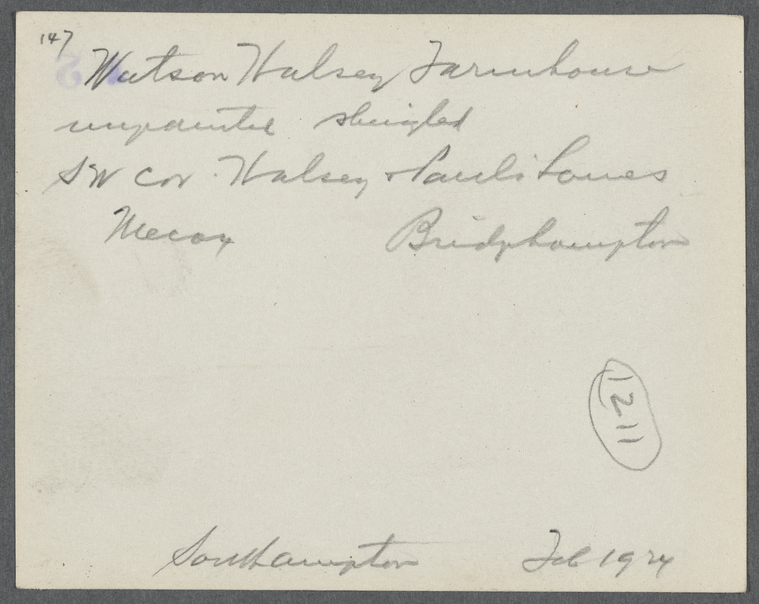 147
Watson Halsey Farmhouse
unpainted shingled
SW cor. Halsey & Pauls Lanes
Mecox Bridgehampton
1211
Southampton Feb 1924